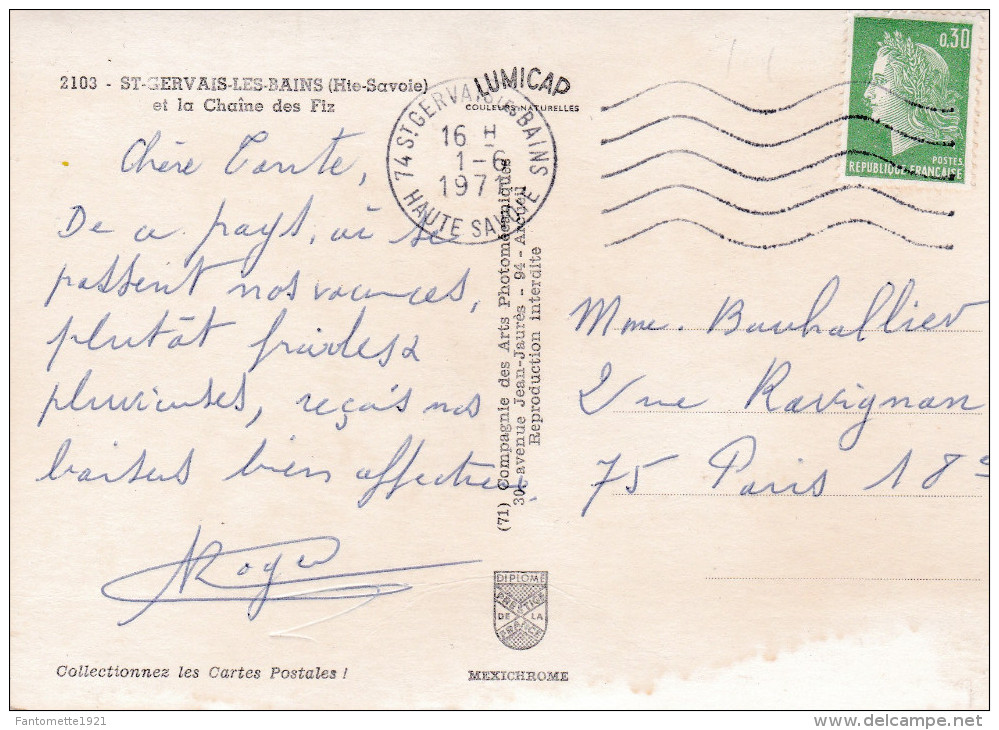 2103 - ST-GERVAIS-LES-BAINS (Hte-Savoie)
et la Chaîne des Fiz
LUMICAP
COULEURS NATURELLES
74 ST GERVAIS LES BAINS
16 H
1-6
197
HAUTE SAVOIE
0,30
POSTES
REPUBLIQUE FRANCAISE
Chère Tante,
De ce pays, où se
passent nos vacances,
plutôt froides &
pluvieuses, reçois nos
baisers bien affectueux.
Roger
(71) Compagnie des Arts Photomécaniques
30, avenue Jean-Jaurès - 94 - Arcueil
Reproduction interdite
Mme. Bauhallier
2 rue Ravignan
75 Paris 18e
DIPLOME
PRESTIGE
DE LA
FRANCE
Collectionnez les Cartes Postales !
MEXICHROME
Fantomette1921
delcampe.net